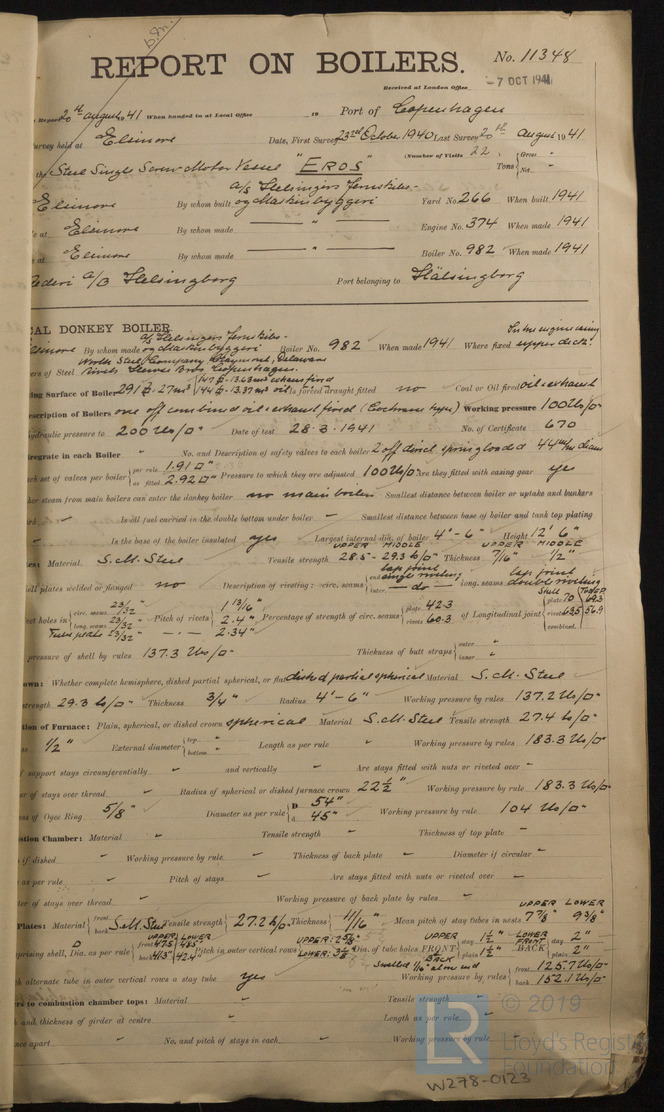 REPORT ON BOILERS.
No. 11348
Received at London Office
-7 OCT 1941
Report 20th August 1941 When handed in at Local Office 19 Port of Copenhagen
Survey held at Elsinore Date, First Survey 23rd October 1940 Last Survey 20th August 1941
(Number of Visits 22
the Steel Single Screw Motor Vessel "EROS" Tons {Gross Net
A/S Helsingørs Jernskibs-
Elsinore By whom built og Maskinbyggeri Yard No. 266 When built 1941
at Elsinore By whom made " Engine No. 374 When made 1941
at Elsinore By whom made " Boiler No. 982 When made 1941
Rederi A/B Helsingborg Port belonging to Hälsingborg
CAL DONKEY BOILER
A/S Helsingørs Jernskibs-
Elsinore By whom made og Maskinbyggeri Boiler No. 982 When made 1941 Where fixed In the engine casing upper deck.
Worth Steel Company, Claymont, Delaware
ers of Steel Rivets Copenhagen.
ing Surface of Boiler 291 - 27 m² 147 - 13.63 m² exhaust fired 144 - 13.37 m² oil Is forced draught fitted no Coal or Oil fired oil & exhaust
escription of Boilers one off combined oil & exhaust fired (Cochran type) Working pressure 100 lbs/□"
hydraulic pressure to 200 lbs/□" Date of test 28.3.1941 No. of Certificate 670
regrate in each Boiler " No. and Description of safety valves to each boiler 2 off direct springloaded 44 m/m diam
ch set of valves per boiler {per rule 1.91 □" as fitted 2.92 □" Pressure to which they are adjusted 100 lbs/□" Are they fitted with easing gear yes
her steam from main boilers can enter the donkey boiler no main boilers Smallest distance between boiler or uptake and bunkers
" Is oil fuel carried in the double bottom under boiler " Smallest distance between base of boiler and tank top plating
" Is the base of the boiler insulated yes Largest internal dia. of boiler 4'-6" Height 12' 6"
UPPER MIDDLE UPPER MIDDLE
Material S.M. Steel Tensile strength 28.5 - 29.3 ts/□" Thickness 7/16" 1/2"
ell plates welded or flanged no Description of riveting: circ. seams {end lap joint single riveting inter. do long. seams lap joint double riveting
et holes in {circ. seams 23/32 long. seams 23/32 Pitch of rivets {1 13/16" 2.4" Percentage of strength of circ. seams {plate 42.3 rivets 60.3 of Longitudinal joint {plate 70 69.3 rivets 63.5 56.9 combined
Tube plates 23/32 " 2.34"
pressure of shell by rules 137.3 lbs/□" Thickness of butt straps {outer " inner "
own: Whether complete hemisphere, dished partial spherical, or flat dished partial spherical Material S.M. Steel
strength 29.3 ts/□" Thickness 3/4" Radius 4'-6" Working pressure by rules 137.2 lbs/□"
tion of Furnace: Plain, spherical, or dished crown spherical Material S.M. Steel Tensile strength 27.4 ts/□"
1/2" External diameter {top " bottom " Length as per rule " Working pressure by rules 183.3 lbs/□"
f support stays circumferentially " and vertically " Are stays fitted with nuts or riveted over "
er of stays over thread " Radius of spherical or dished furnace crown 22 1/2" Working pressure by rule 183.3 lbs/□"
ss of Ogee Ring 5/8" Diameter as per rule {D 54" d 45" Working pressure by rule 104 lbs/□"
stion Chamber: Material " Tensile strength " Thickness of top plate "
if dished " Working pressure by rule " Thickness of back plate " Diameter if circular "
as per rule " Pitch of stays " Are stays fitted with nuts or riveted over "
ter of stays over thread " Working pressure of back plate by rules "
UPPER LOWER
Plates: Material {front back S.M. Steel Tensile strength {27.2 ts/□" Thickness {11/16" Mean pitch of stay tubes in nests 7 7/8" 9 3/8"
UPPER LOWER
prising shell, Dia. as per rule {front 47.5 back 41.3 42.4 Pitch in outer vertical rows UPPER: LOWER: Dia. of tube holes FRONT UPPER {stay 1 1/2" plain 1 1/2" LOWER FRONT BACK {stay 2" plain 2"
h alternate tube in outer vertical rows a stay tube yes Swelled 1/16" at one end Working pressure by rules {front 125.7 lbs/□" back 152.1 lbs/□"
rs to combustion chamber tops: Material " Tensile strength "
and thickness of girder at centre " Length as per rule "
nce apart " No. and pitch of stays in each " Working pressure by rule
© 2019
LR
Lloyd's Register
Foundation
W278-0123